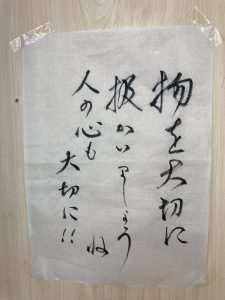 物を大切に
扱かいましょうね
人の心も
大切に!!